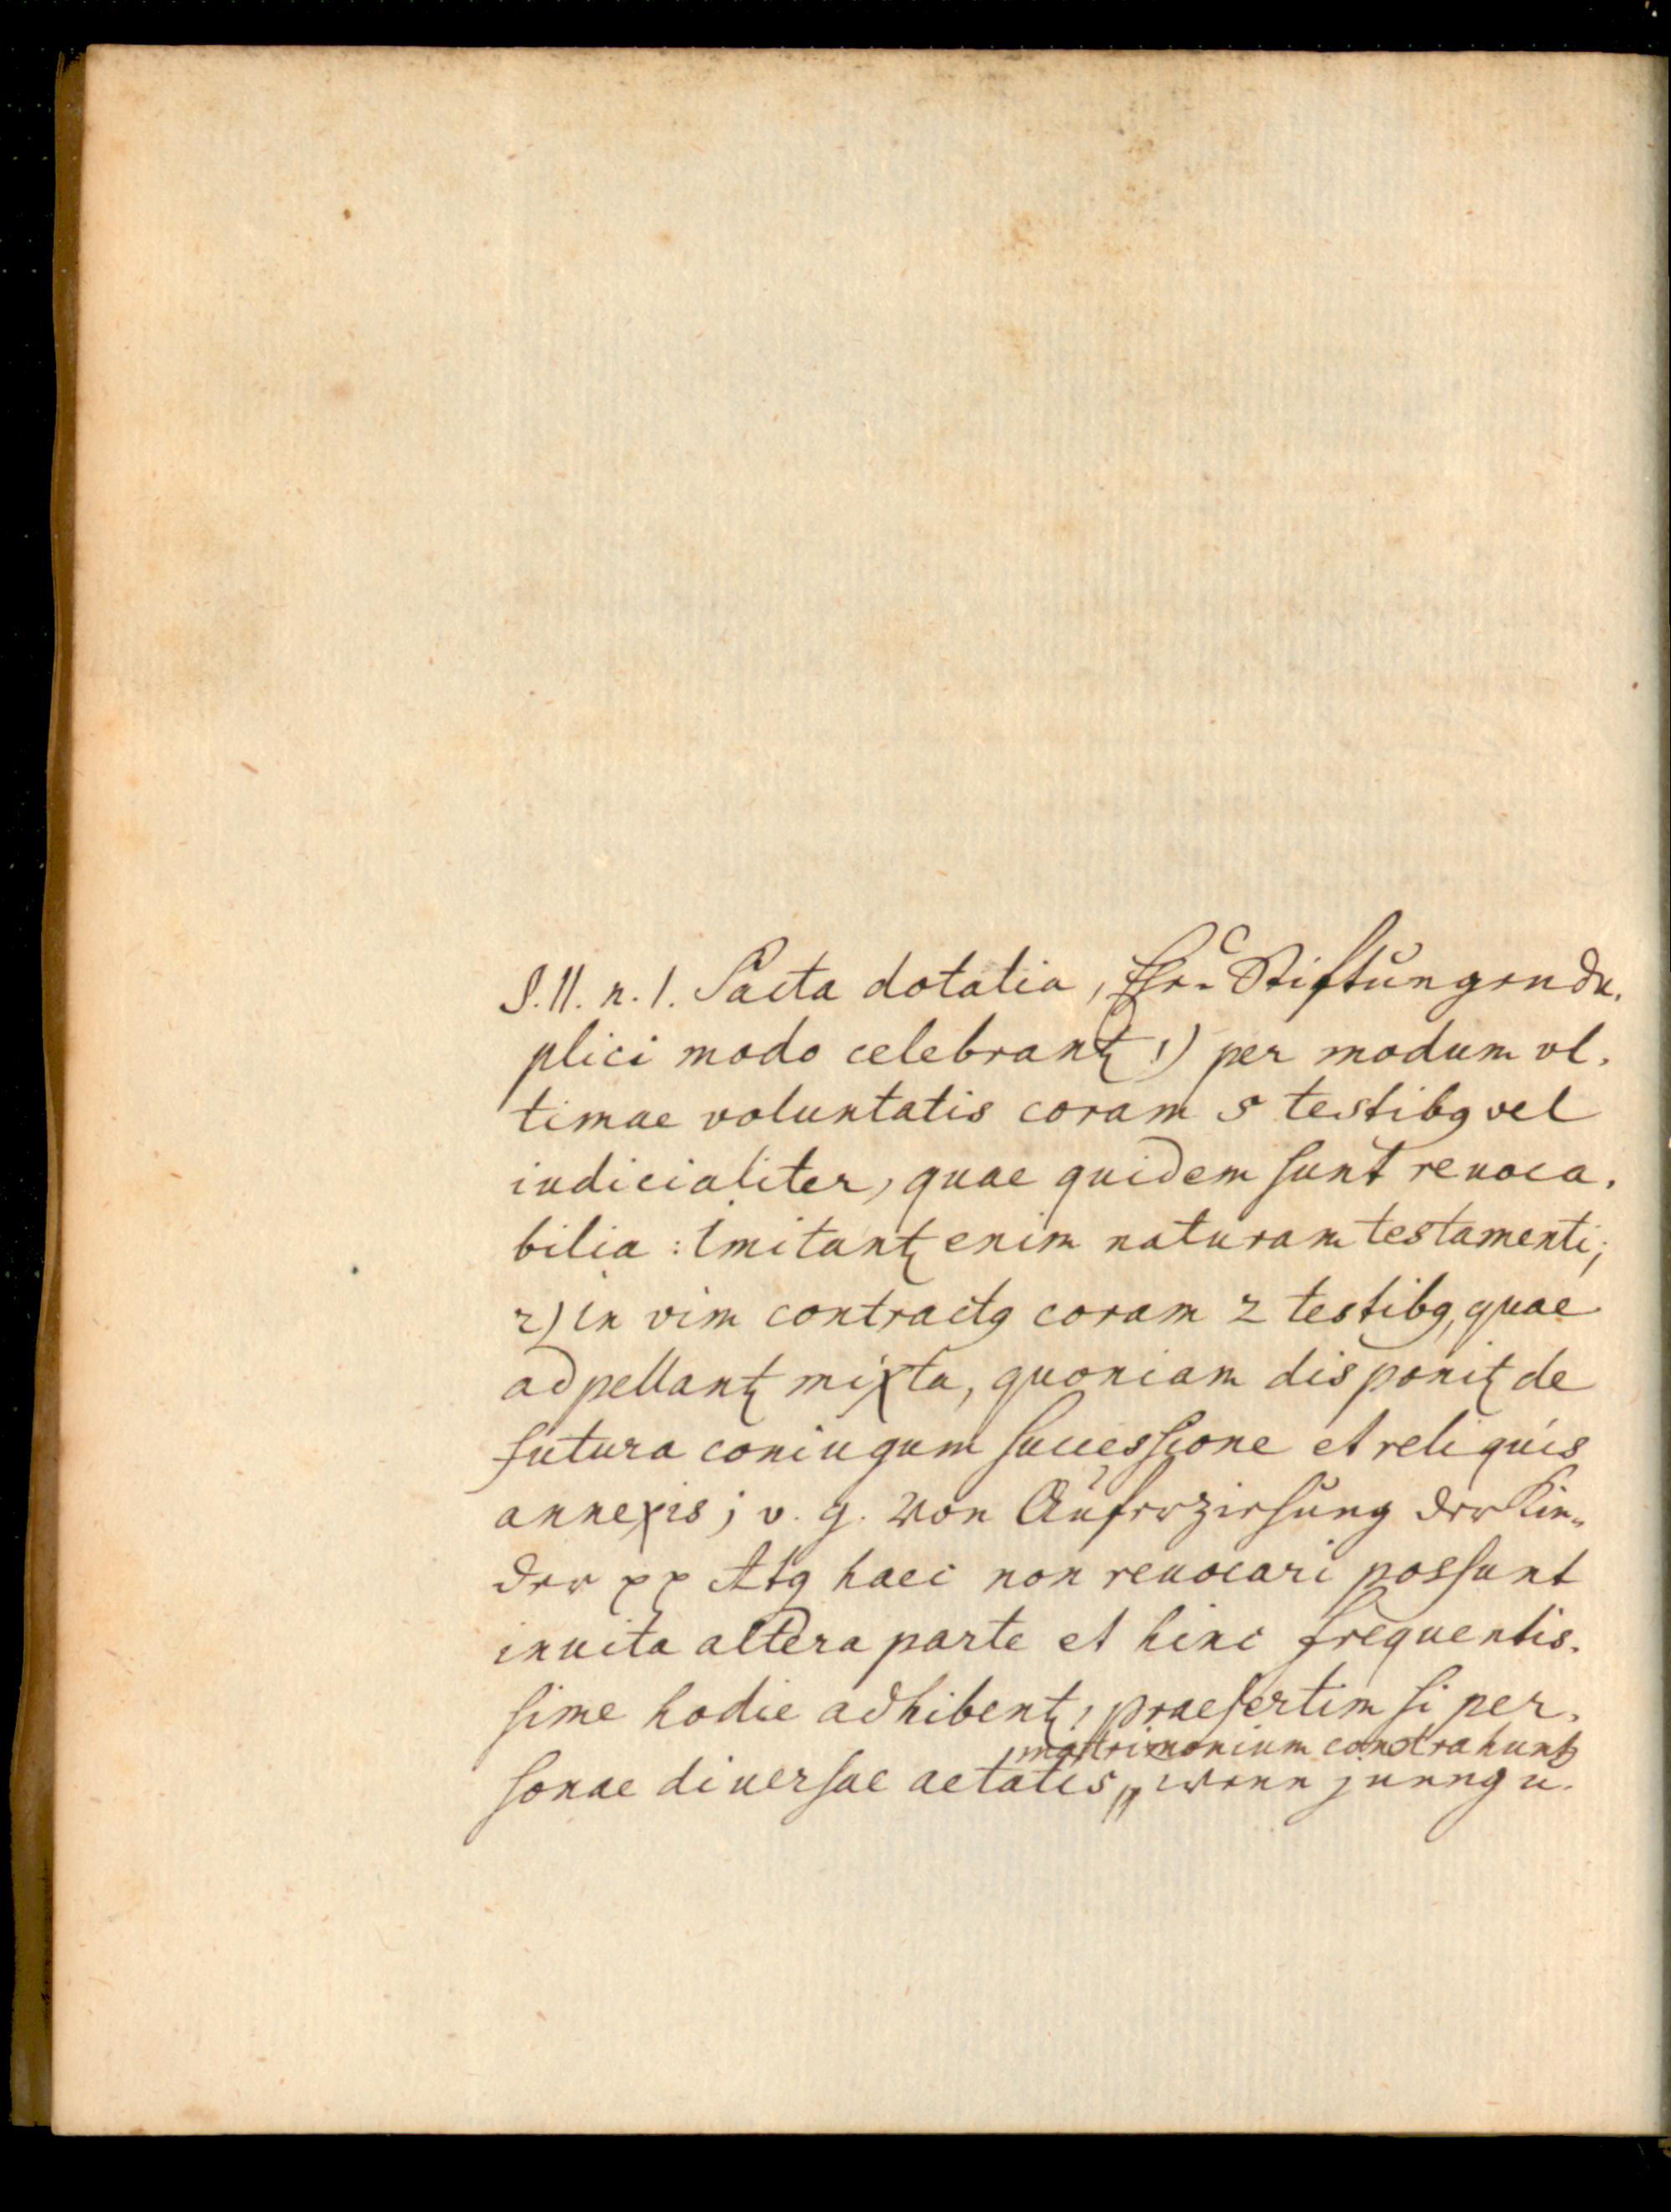 §. 11. n. 1. Pacta dotalia, Ehe-Stiftungen du-
plici modo celebrantꝛ 1) per modum vl-
timae voluntatis coram 5 testibꝯ vel
iudicialiter, quae quidem sunt reuoca-
bilia: Imitantꝛ enim naturam testamenti;
2) in vim contractꝯ coram 2 testibꝯ, quae
adpellantꝛ mixta, quoniam disponitꝛ de
futura coniugum successione et reliquis
annexis; v. g. von Auferziehung der Kin-
der pp Atq haec non reuocari possunt
inuita altera parte et hinc frequentis-
sime hodie adhibentꝛ, praesertim si per-
matrimonium contrahunt
sonae diuersae aetatis, wenn jung u.